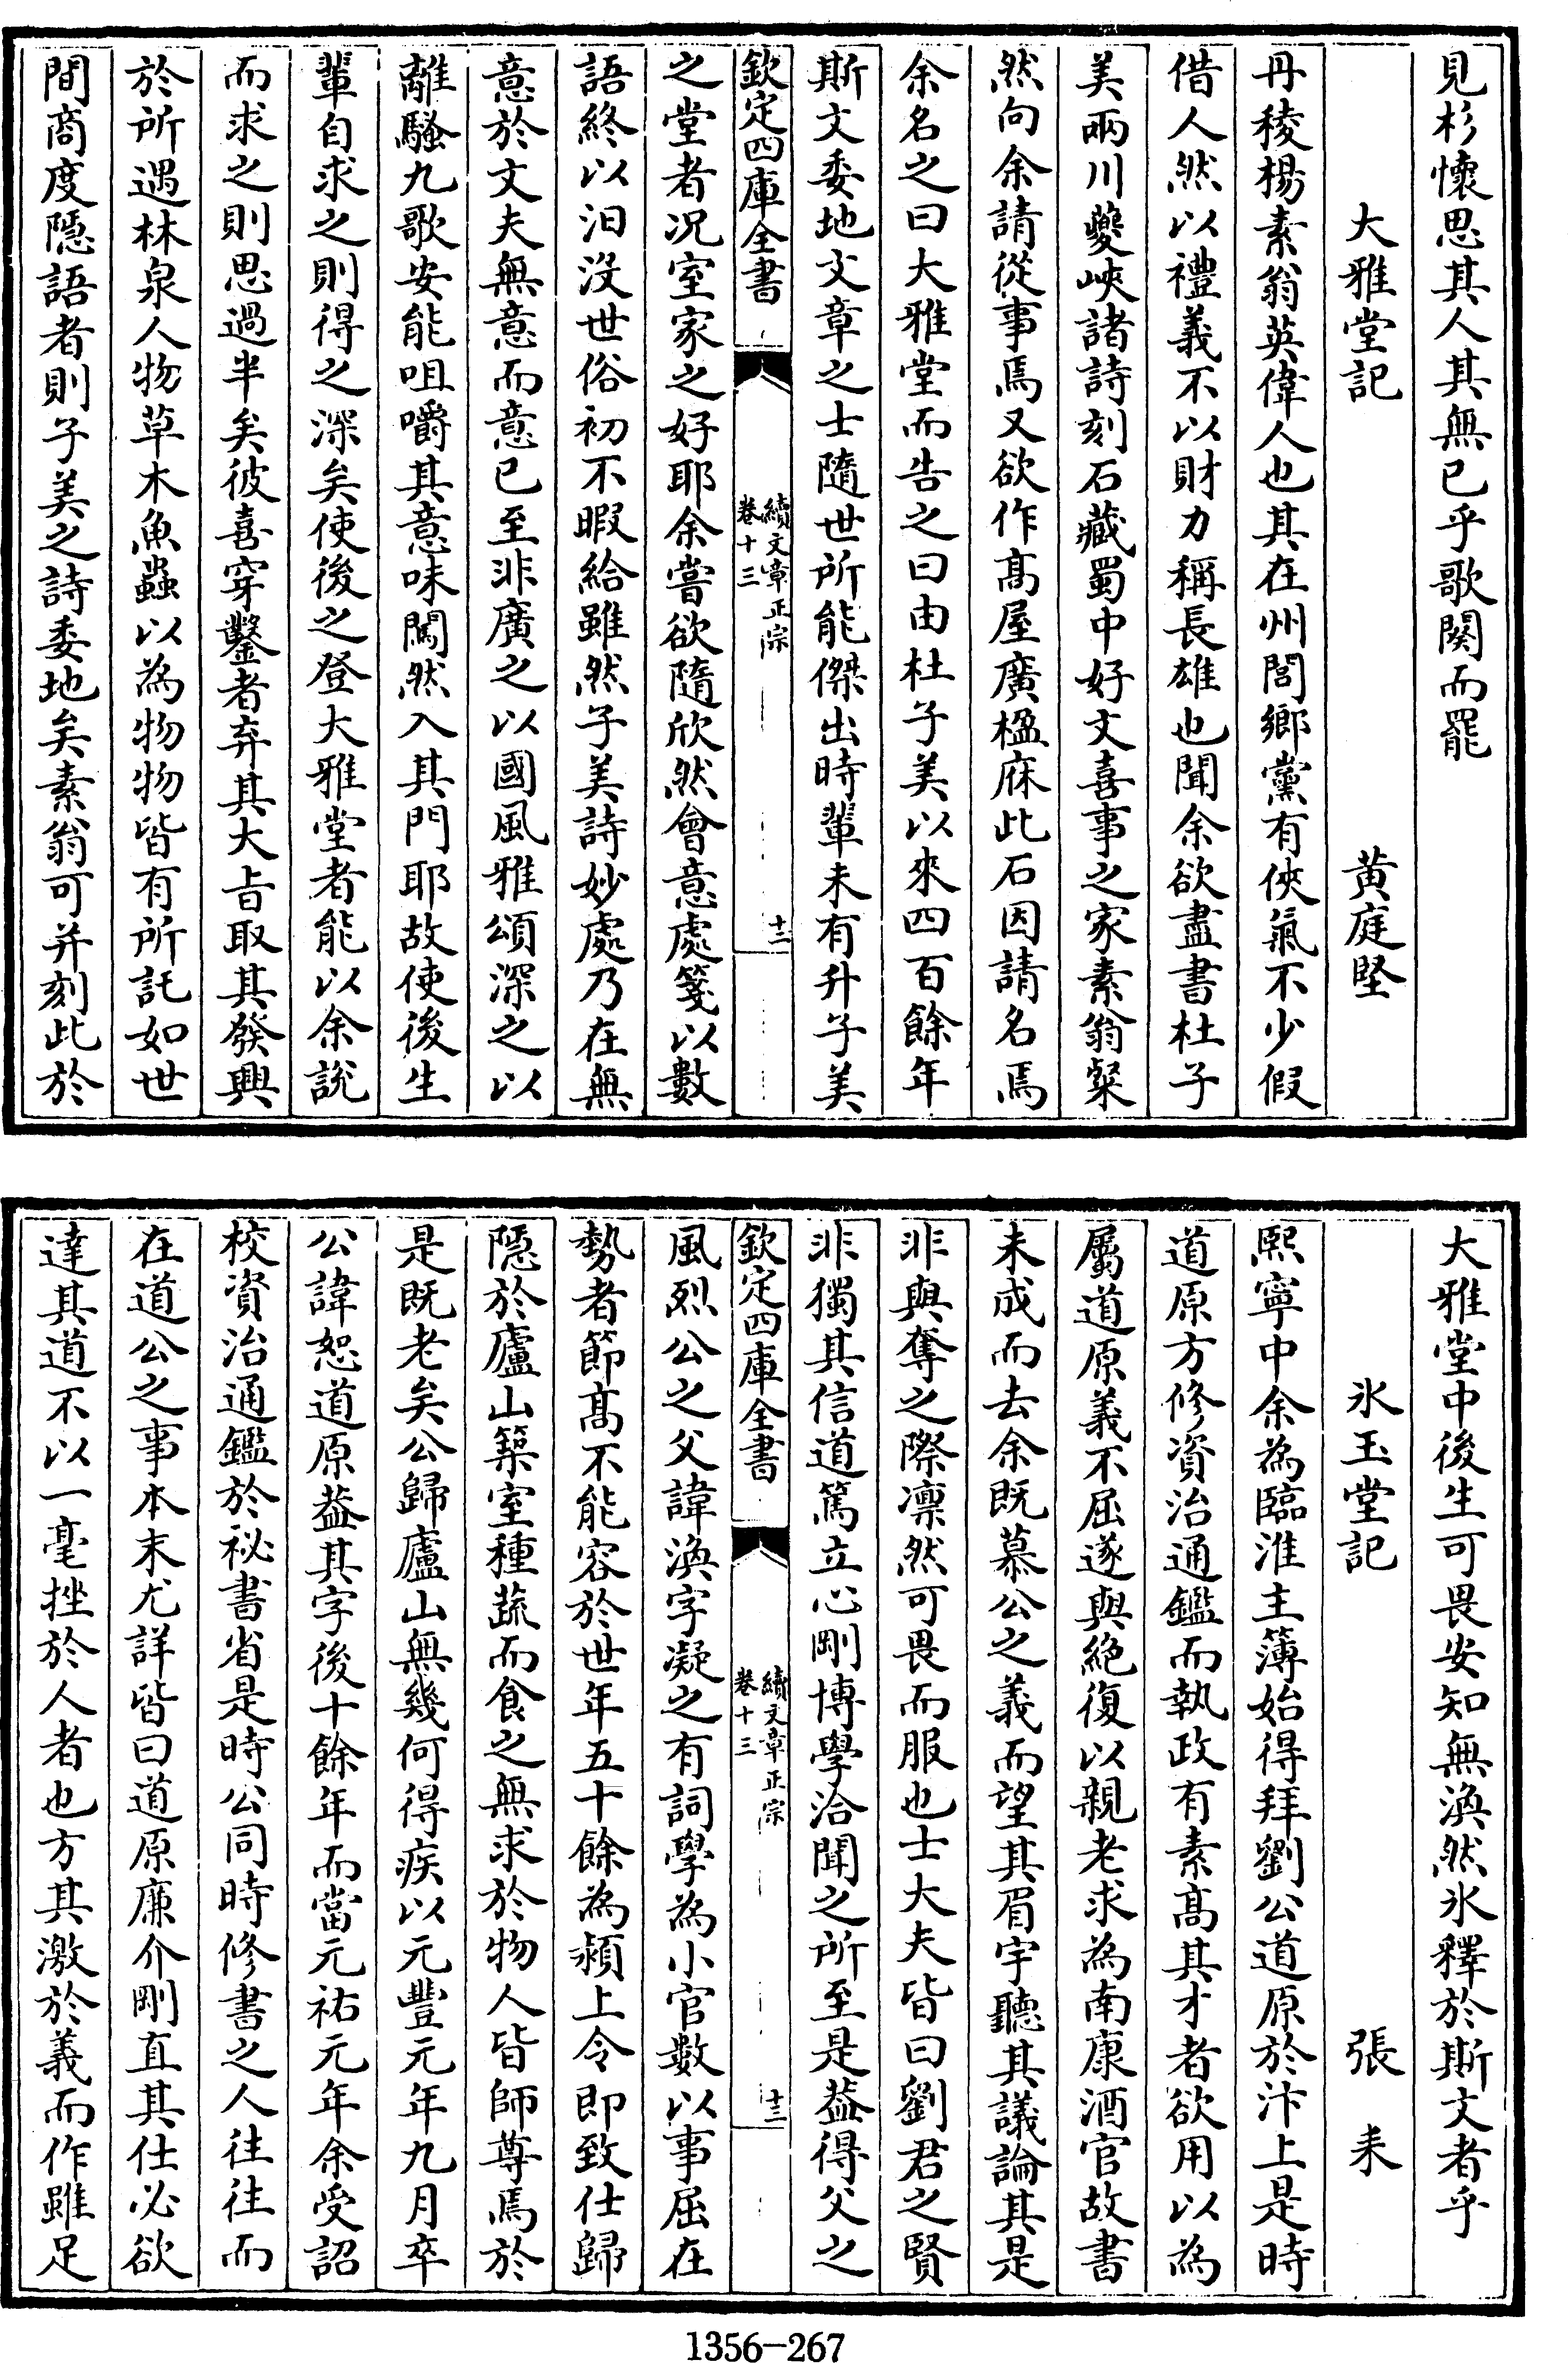 見杉懷思其人其無已乎歌闋而罷
大雅堂記 黄庭堅
丹稜楊素翁英偉人也其在州閭鄉黨有俠氣不少假
借人然以禮義不以財力稱長雄也聞余欲盡書杜子
美兩川夔峽諸詩刻石藏蜀中好文喜事之家素翁粲
然向余請從事焉又欲作髙屋廣楹庥此石因請名焉
余名之曰大雅堂而告之曰由杜子美以來四百餘年
斯文委地文章之士隨世所能傑出時輩未有升子美
欽定四庫全書
續文章正宗
卷十三
十二
之堂者况室家之好耶余嘗欲隨欣然會意處箋以數
語終以汨沒世俗初不暇給雖然子美詩妙處乃在無
意於文夫無意而意已至非廣之以國風雅頌深之以
離騷九歌安能咀嚼其意味闖然入其門耶故使後生
輩自求之則得之深矣使後之登大雅堂者能以余說
而求之則思過半矣彼喜穿鑿者弃其大㫖取其發興
於所遇林泉人物草木魚蟲以為物物皆有所託如世
間商度隱語者則子美之詩委地矣素翁可并刻此於
大雅堂中後生可畏安知無渙然氷釋於斯文者乎
氷玉堂記 張耒
熙寧中余為臨淮主簿始得拜劉公道原於汴上是時
道原方修資治通鑑而執政有素髙其才者欲用以為
屬道原義不屈遂與絶復以親老求為南康酒官故書
未成而去余既慕公之義而望其眉宇聽其議論其是
非與奪之際凛然可畏而服也士大夫皆曰劉君之賢
非獨其信道篤立心剛博學洽聞之所至是葢得父之
欽定四庫全書
續文章正宗
卷十三
十三
風烈公之父諱渙字凝之有詞學為小官數以事屈在
勢者節髙不能容於世年五十餘為潁上令即致仕歸
隱於廬山築室種蔬而食之無求於物人皆師尊焉於
是既老矣公歸廬山無幾何得疾以元豐元年九月卒
公諱恕道原葢其字後十餘年而當元祐元年余受詔
校資治通鑑於祕書省是時公同時修書之人往往而
在道公之事本末尤詳皆曰道原廉介剛直其仕必欲
達其道不以一毫挫於人者也方其激於義而作雖足
1356-267